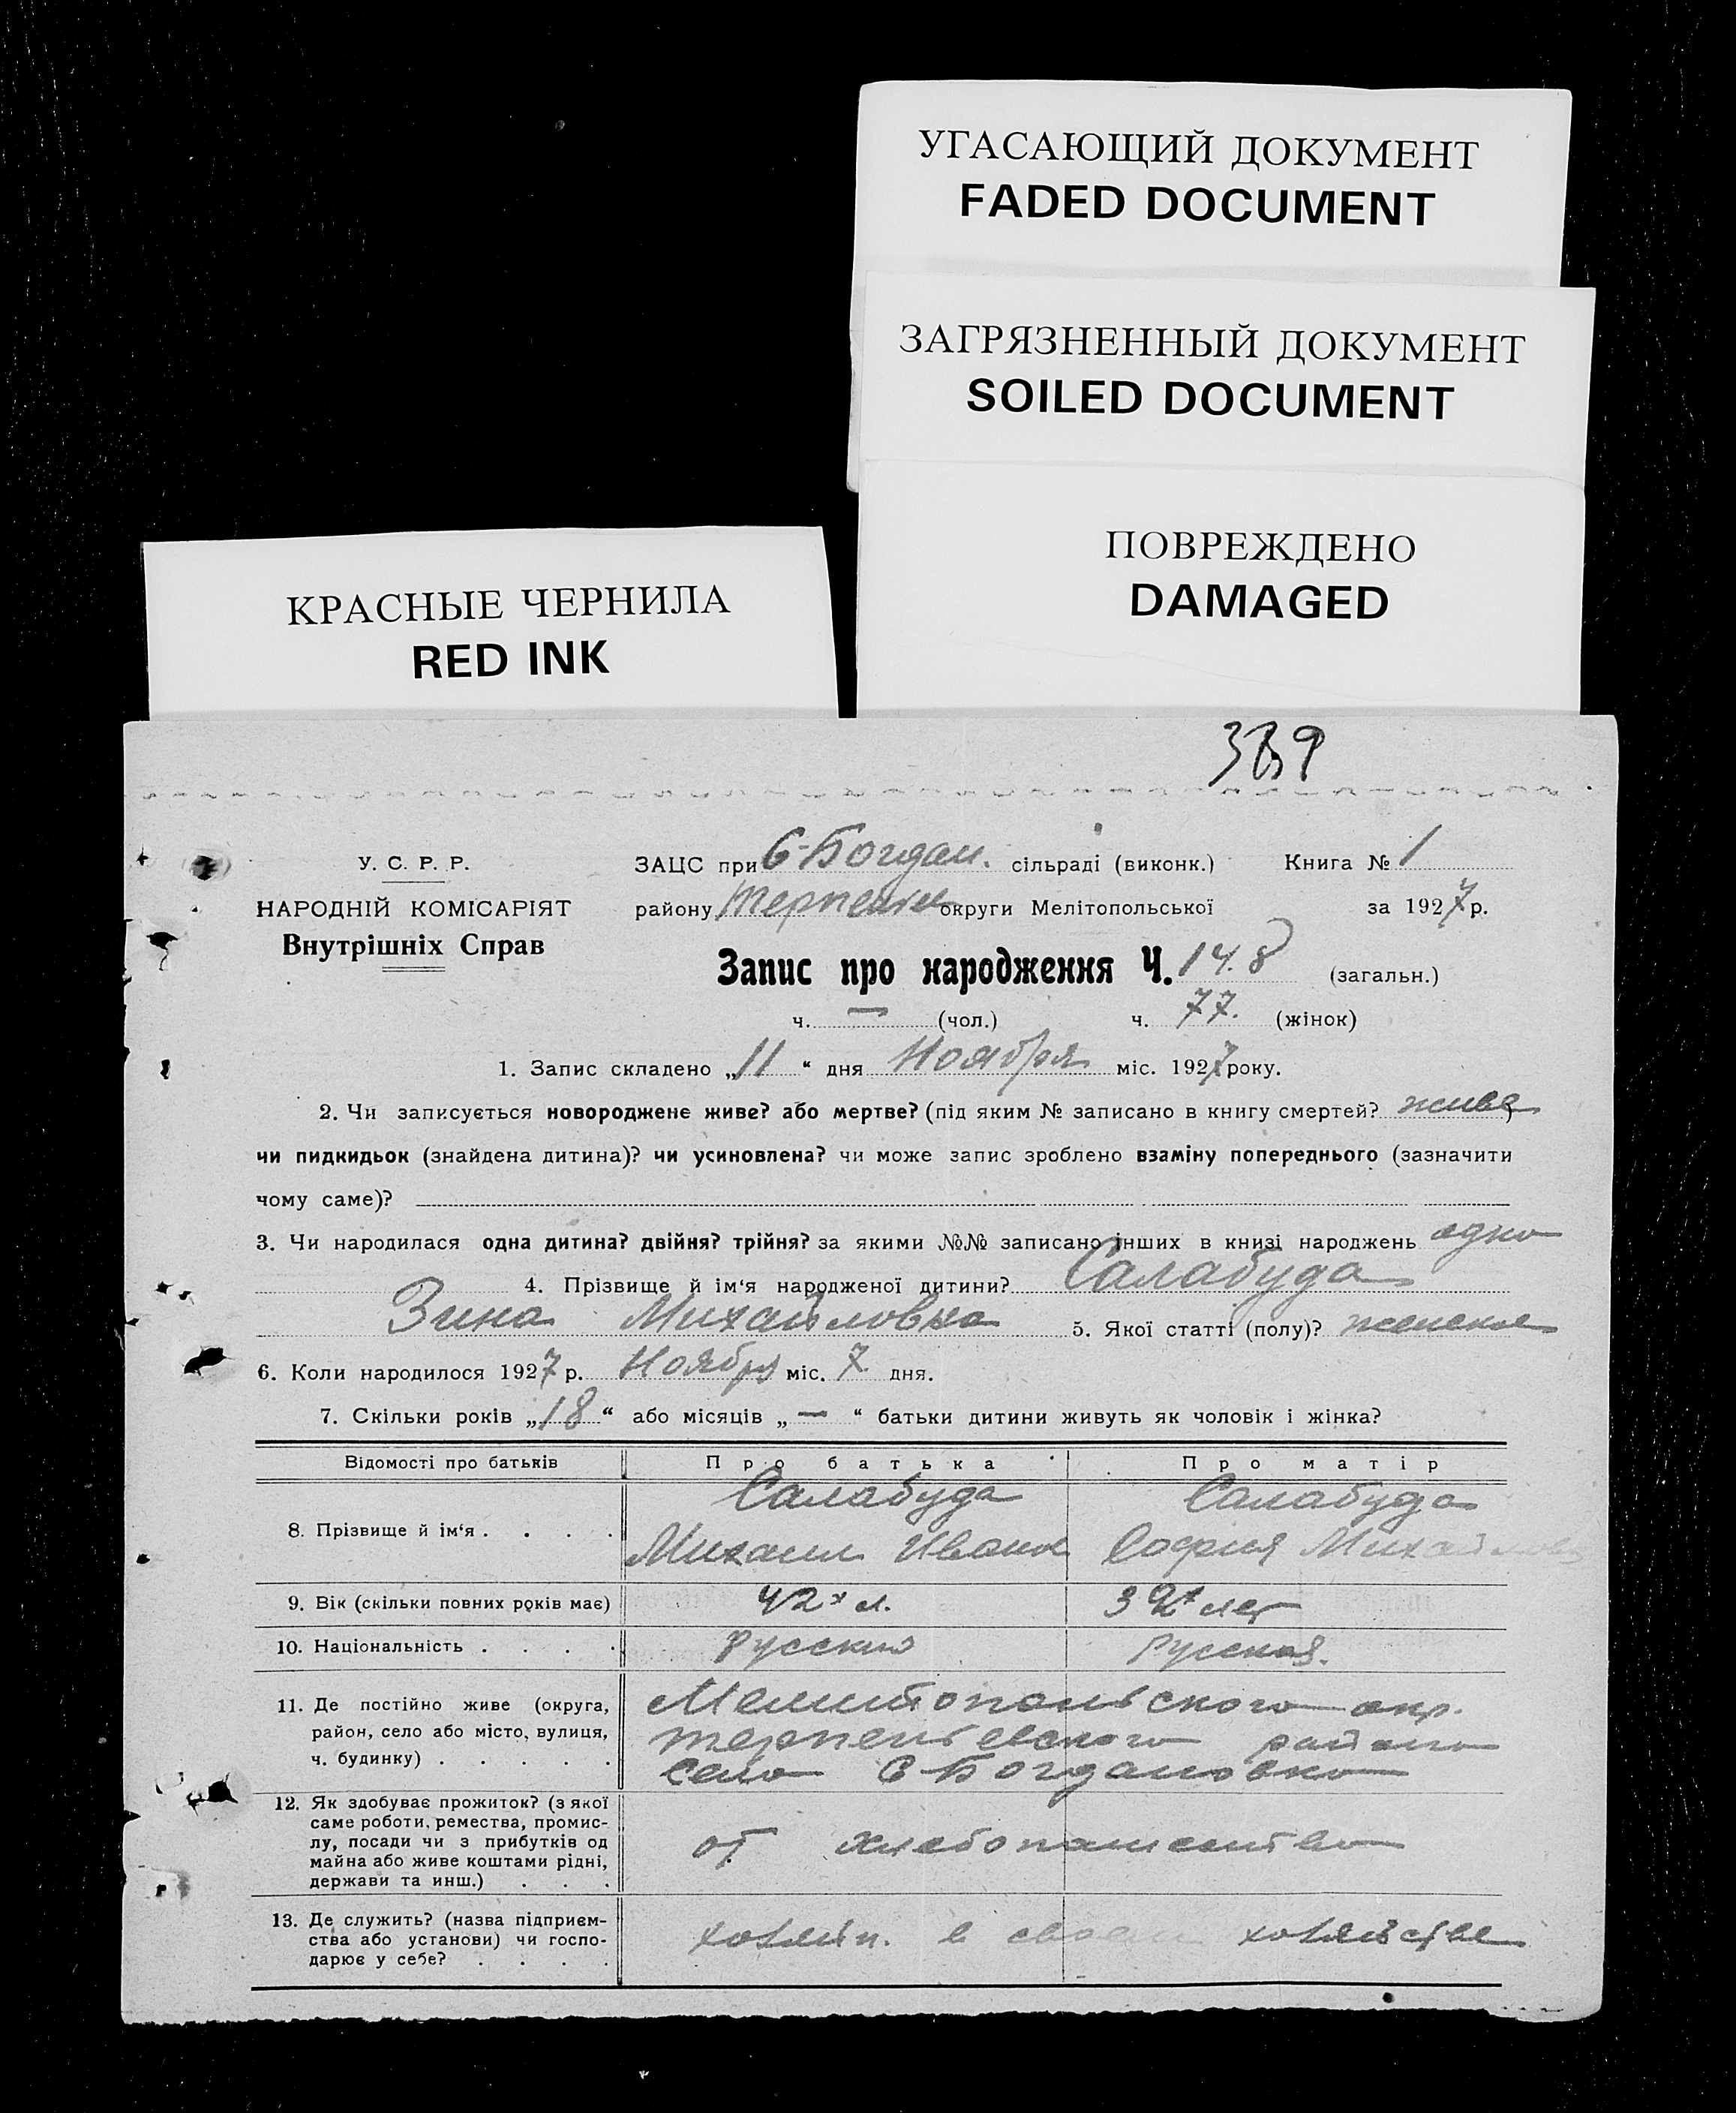 УГАСАЮЩИЙ ДОКУМЕНТ
FADED DOCUMENT
ЗАГРЯЗНЕННЫЙ ДОКУМЕНТ
SOILED DOCUMENT
ПОВРЕЖДЕНО
DAMAGED
КРАСНЫЕ ЧЕРНИЛА
RED INK
У. С. Р. Р.
НАРОДНІЙ КОМІСАРІЯТ
Внутрішніх Справ
ЗАЦС при С-Богдан. сільраді (виконк.) Книга № 1
району округи Мелітопольської за 1927 р.
Запис про народження Ч. 148 (загальн.)
ч. — (чол.) ч. 77. (жінок)
1. Запис складено „11“ дня Ноября міс. 1927 року.
2. Чи записується новороджене живе? або мертве? (під яким № записано в книгу смертей? живе)
чи пидкидьок (знайдена дитина)? чи усиновлена? чи може запис зроблено взаміну попереднього (зазначити
чому саме)?
3. Чи народилася одна дитина? двійня? трійня? за якими №№ записано інших в книзі народжень одно
4. Прізвище й ім‘я народженої дитини? Салабуда
Зина Михайловна 5. Якої статті (полу)? женское
6. Коли народилося 1927 р. Ноября міс. 7 дня.
7. Скільки років „18“ або місяців „—“ батьки дитини живуть як чоловік і жінка?
Відомості про батьків Про батька Про матір
8. Прізвище й ім‘я . . . .
Салабуда
Михаил Иванов
Салабуда
София Михайловна
9. Вік (скільки повних років має) 42х л. лет
10. Національність . . . . Русский Русская.
11. Де постійно живе (округа,
район, село або місто, вулиця,
ч. будинку) . . . . .
Мелитопольского окр.
терпеньевского района
село С Богдановка
12. Як здобуває прожиток? (з якої
саме роботи, ремества, промис-
лу, посади чи з прибутків од
майна або живе коштами рідні,
держави та инш.) . . .
от хлебопашества
13. Де служить? (назва підприєм-
ства або установи) чи госпо-
дарює у себе? . . . .
хозяйн. в своем хозяйстве